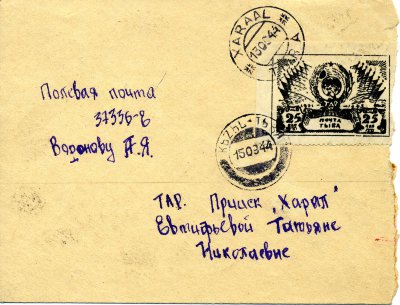 KARAAL
15 03 44
25 25
ПОЧТА
ТЫВА
15 03 44
Полевая почта
37336-Е
Воронову А.Я.
ТАР. Прииск „Харал"
Евтифьевой Татьяне
Николаевне